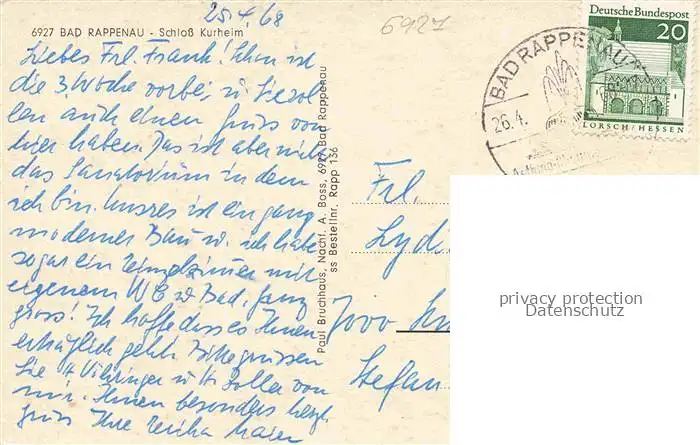 25.4.68
6927
6927 BAD RAPPENAU - Schloß Kurheim
Liebes Frl. Frank! Schon ist
die 3. Woche vorbei, u. Sie sollen
auch einen Gruss von
hier haben. Das ist aber nicht
das Sanatorium in dem
ich bin. Unsres ist ein ganz
moderner Bau u. ich habe
sogar ein Einzelzimmer mit
eigenem WC u. Bad, ganz
gross! Ich hoffe dass es Ihnen
erträglich geht. Bitte grüssen
Sie von
mir. Ihnen besonders herzl.
Gruss Ihre Maier
Paul Bruchhaus, Nachf. A. Boss, 6927 Bad Rappenau
ss Bestellnr. Rapp 136
Deutsche Bundespost
20
LORSCH/HESSEN
BAD RAPPENAU
26.4.
Frl.
Lydi
7000
Stefan
privacy protection
Datenschutz